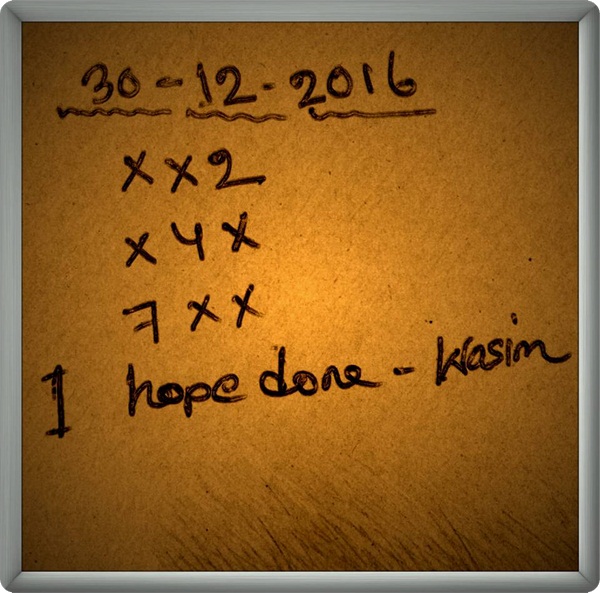 30-12-2016
xx2
x4x
7xx
I hope done - Wasim